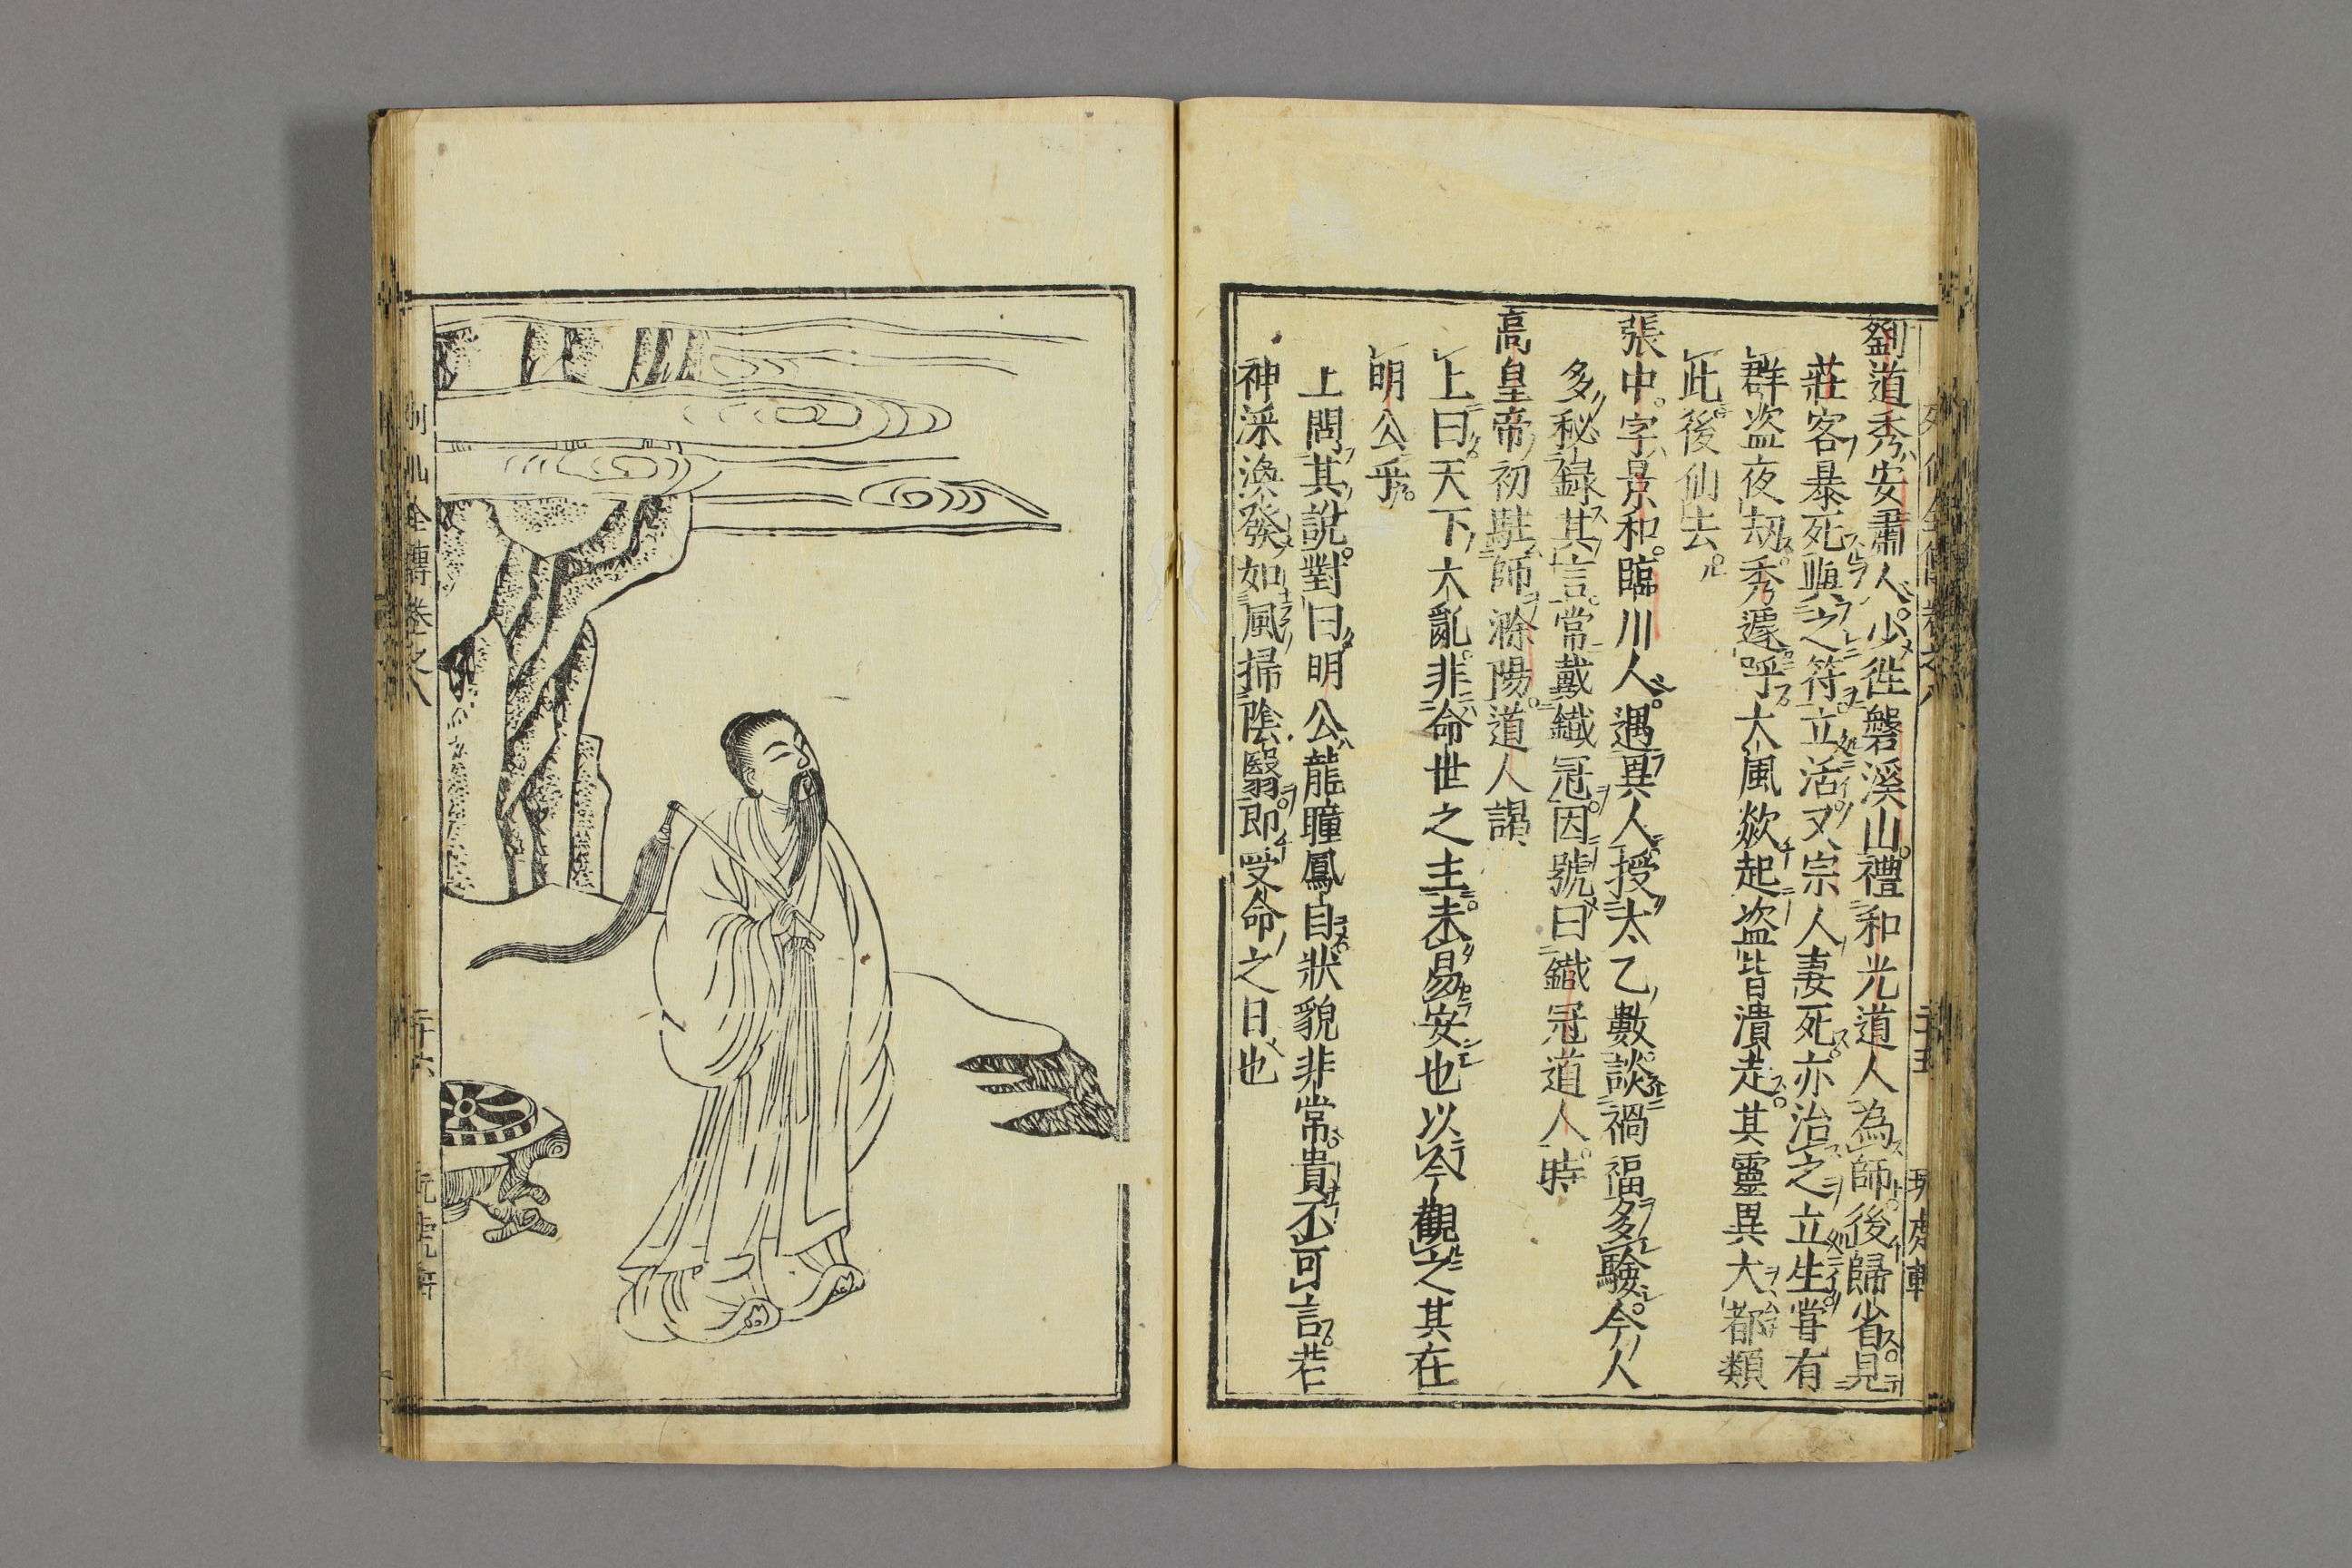 劉道秀安肅人少徃磐溪山禮和光道人為師後歸省見
莊客暴死與之符立活又宗人妻死亦治之立生甞有
群盗夜刼秀遽呼大風欻起盗皆潰走其靈異大都類
此後仙去
張中字景和臨川人遇異人授太乙數談禍福多驗今人
多秘録其言常戴鐵冠因號曰鐵冠道人時
高皇帝初駐師滁陽道人謁
上曰天下大亂非命世之主未易安也以今觀之其在
明公乎
上問其說對曰明公龍瞳鳳目狀貌非常貴不可言若
神采渙發如風掃陰翳即受命之日也
列仙全傳卷之八
二十六